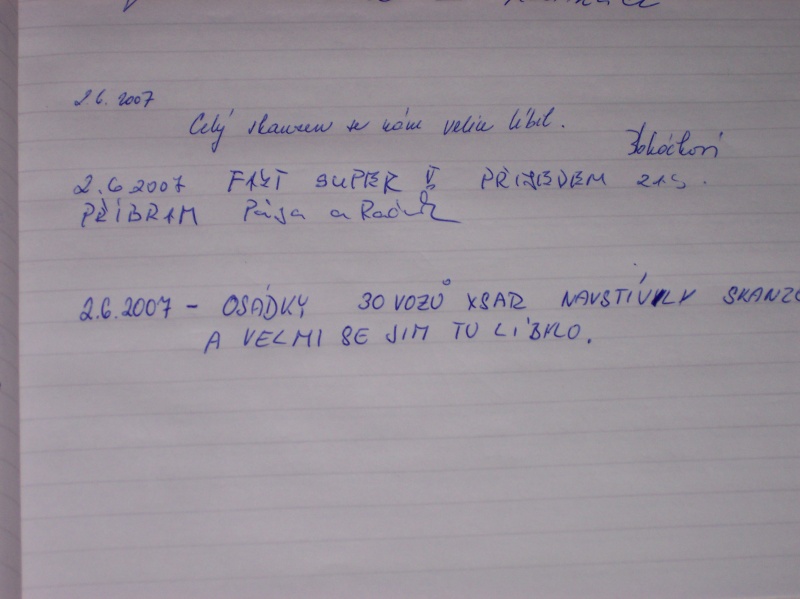 2.6. 2007
Celý skanzen se nám velice líbil.
2.6 2007 FAKT SUPER ! PŘIJEDEM ZAS.
PŘÍBRAM Pája a
2.6.2007 - OSÁDKY 30 VOZŮ XSAR NAVSTÍVILY
A VELMI SE JIM TU LÍBILO.